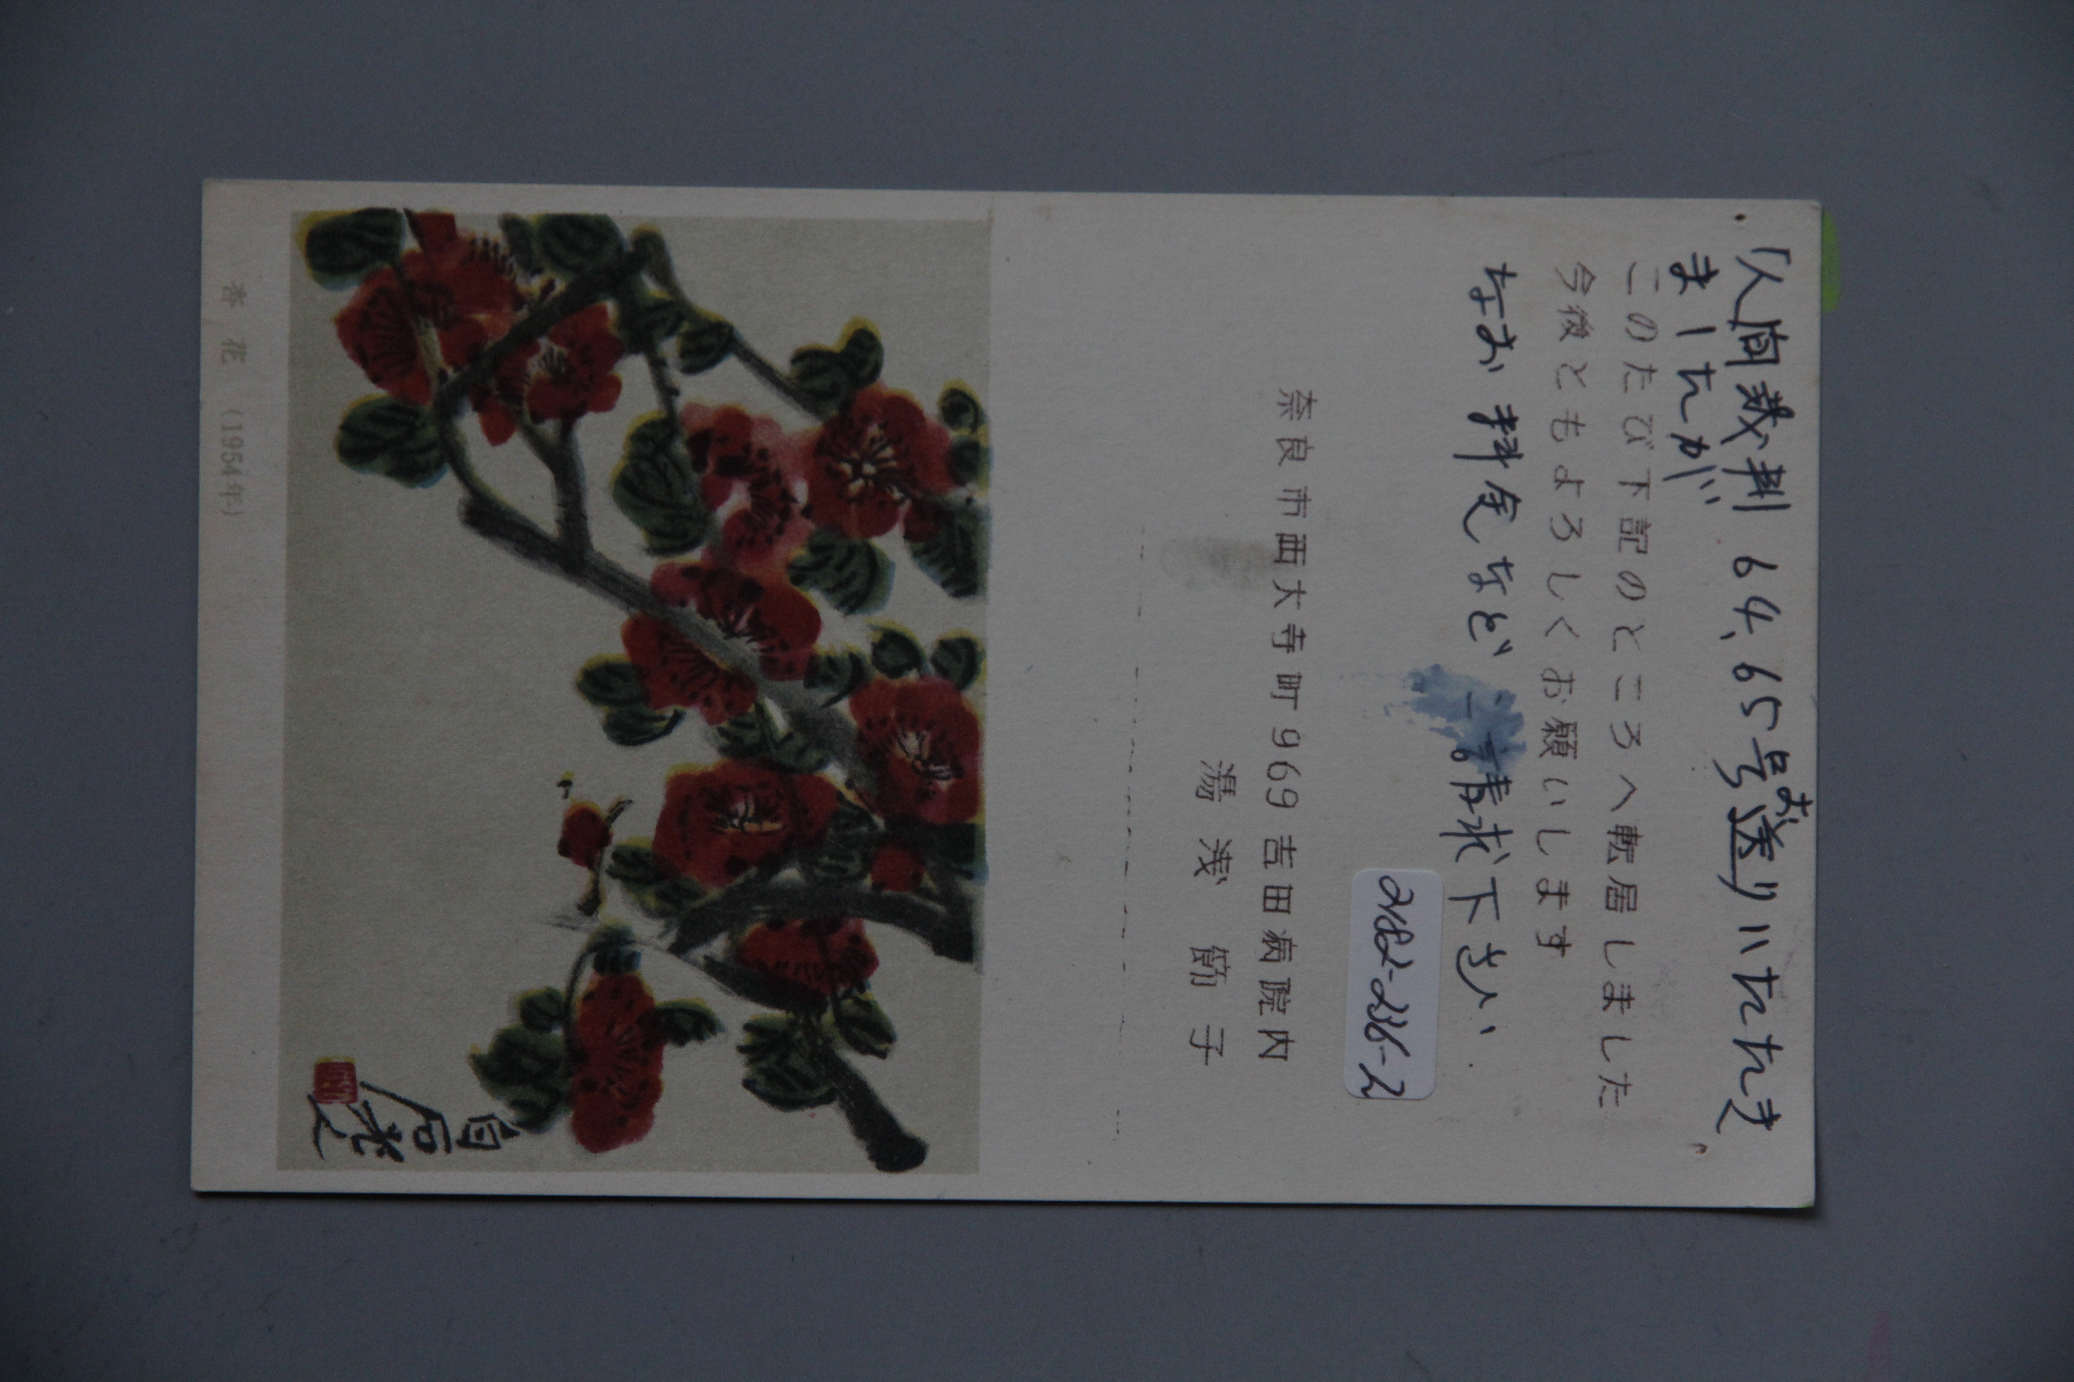 「人間裁判 64、65号お送りいただき
ましたが
このたび下記のところへ転居しました
今後ともよろしくお願いします
なお料金などご請求下さい.
2182-236-2
奈良市西大寺町969 吉田病院内
湯浅 節子
白石老人
春花 (1954年)